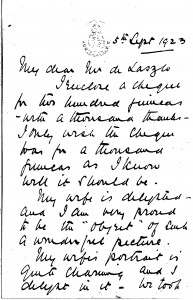 5th Sept 1923
My dear Mr de Laszlo
I enclose a cheque
for two hundred guineas
- with a thousand thanks -
I only wish the cheque
was for a thousand
guineas as I know
well it should be.
My wife is delighted -
and I am very proud
to be the "object" of such
a wonderful picture.
My wife's portrait is
quite charming and I
delight in it - We took